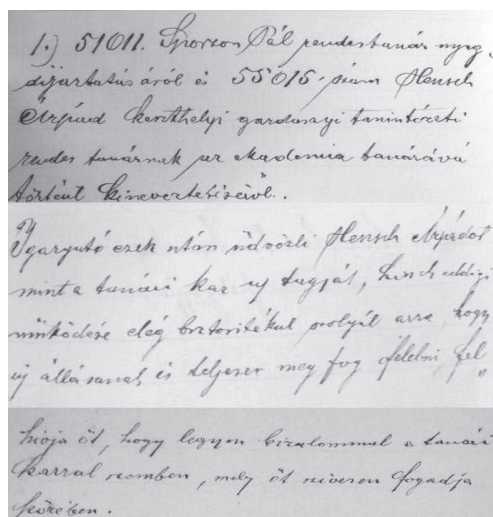 1.) 51011. Sporzon Pál rendes tanár nyug-
díjaztatásáról és 55015. szám Hensch
Árpád keszthelyi gazdasági tanintézeti
rendes tanárnak az akadémia tanárává
történt kineveztetéséről.
Igazgató ezek után üdvözli Hensch Árpádot
mint a tanári kar uj tagját, kinek eddigi
működése elég biztositékul szolgál arra, hogy
uj állásának is teljesen meg fog felelni, fel
hivja őt, hogy legyen bizalommal a tanári
karral szemben, mely őt szivesen fogadja
körében.